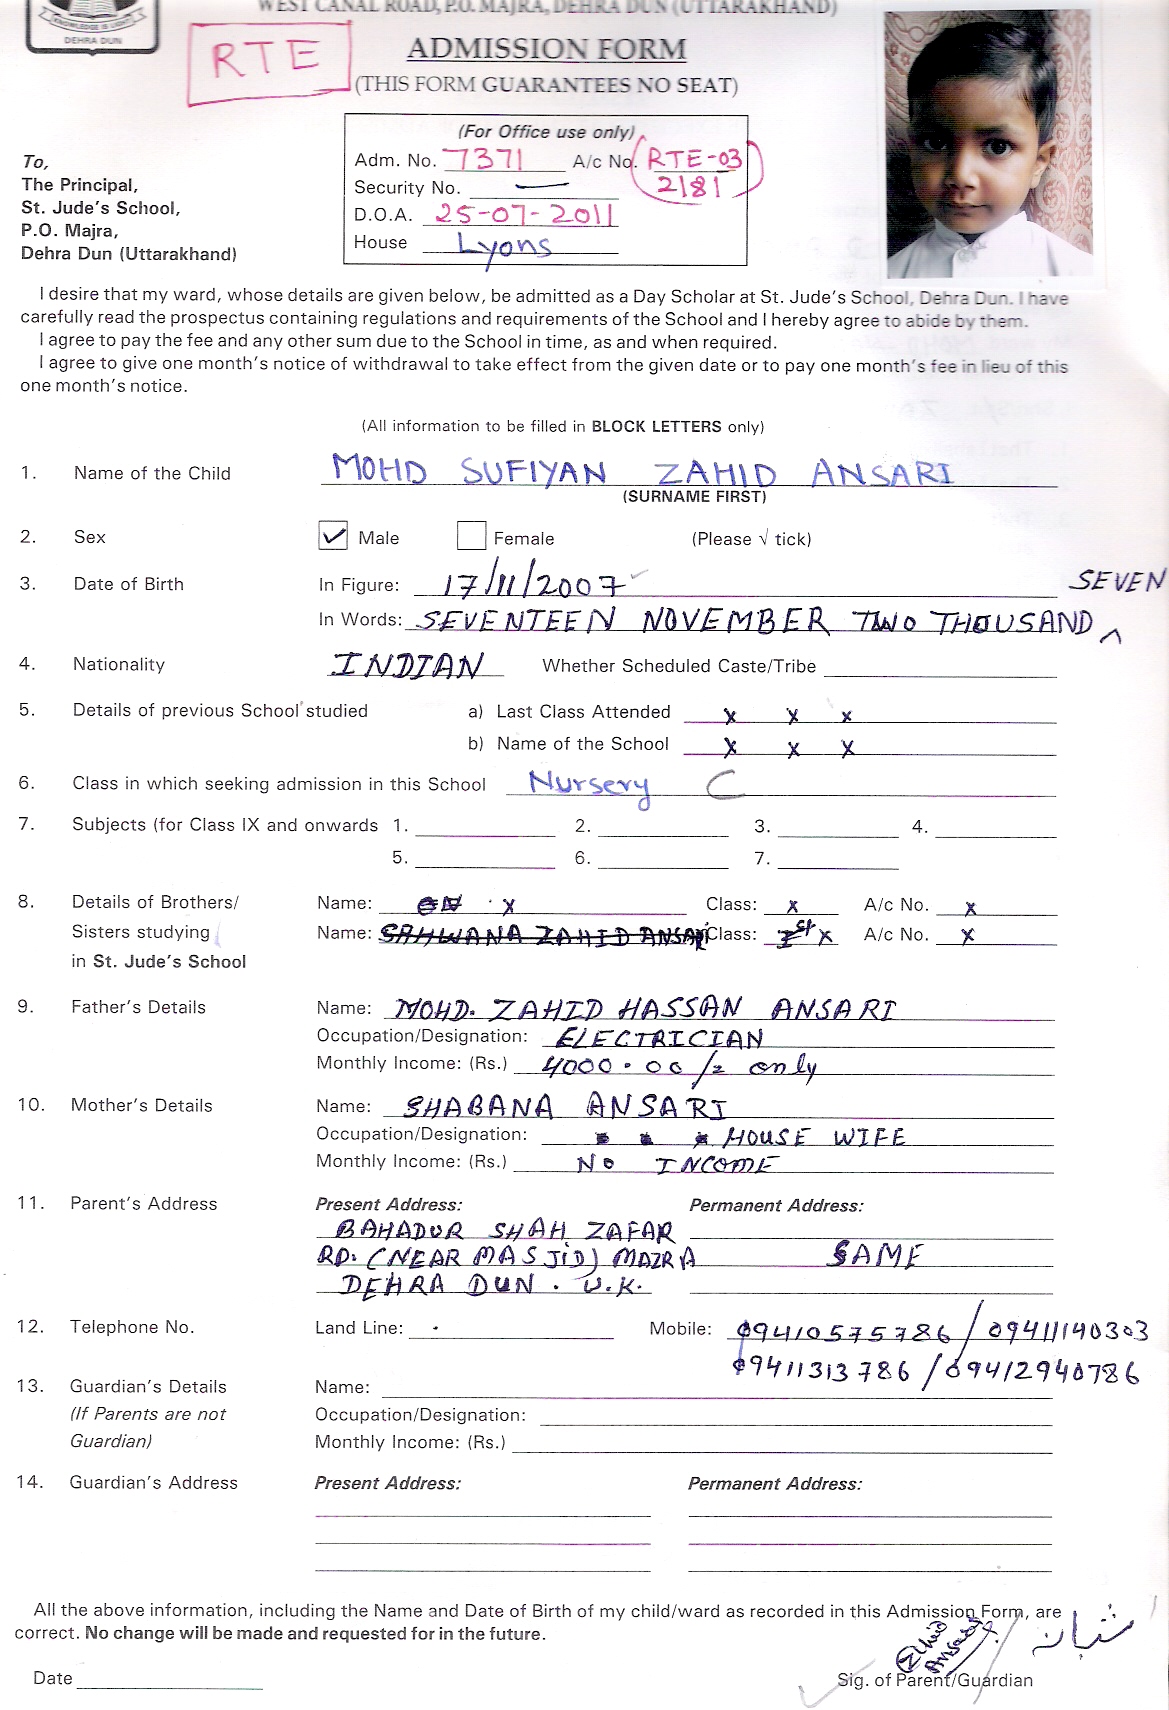 WEST CANAL ROAD, P.O. MAJRA, DEHRA DUN (UTTARAKHAND)
DEHRA DUN
RTE
ADMISSION FORM
(THIS FORM GUARANTEES NO SEAT)
(For Office use only)
Adm. No. 7371 A/c No. RTE-03
2181
Security No. —
D.O.A. 25-07-2011
House Lyons
To,
The Principal,
St. Jude's School,
P.O. Majra,
Dehra Dun (Uttarakhand)
I desire that my ward, whose details are given below, be admitted as a Day Scholar at St. Jude's School, Dehra Dun. I have
carefully read the prospectus containing regulations and requirements of the School and I hereby agree to abide by them.
I agree to pay the fee and any other sum due to the School in time, as and when required.
I agree to give one month's notice of withdrawal to take effect from the given date or to pay one month's fee in lieu of this
one month's notice.
(All information to be filled in BLOCK LETTERS only)
1. Name of the Child MOHD SUFIYAN ZAHID ANSARI
(SURNAME FIRST)
2. Sex ✓ Male Female (Please √ tick)
3. Date of Birth In Figure: 17/11/2007
SEVEN
In Words: SEVENTEEN NOVEMBER TWO THOUSAND ^
4. Nationality INDIAN Whether Scheduled Caste/Tribe
5. Details of previous School studied a) Last Class Attended x x x
b) Name of the School x x x
6. Class in which seeking admission in this School Nursery C
7. Subjects (for Class IX and onwards 1. 2. 3. 4.
5. 6. 7.
8. Details of Brothers/ Name: x Class: x A/c No. x
Sisters studying Name: SAHWANA ZAHID ANSARI Class: Ist x A/c No. x
in St. Jude's School
9. Father's Details Name: MOHD. ZAHID HASSAN ANSARI
Occupation/Designation: ELECTRICIAN
Monthly Income: (Rs.) 4000.00/= only
10. Mother's Details Name: SHABANA ANSARI
Occupation/Designation: HOUSE WIFE
Monthly Income: (Rs.) NO INCOME
11. Parent's Address Present Address: Permanent Address:
BAHADUR SHAH ZAFAR
RD. (NEAR MASJID) MAZRA SAME
DEHRA DUN. U.K.
12. Telephone No. Land Line: Mobile: 09410575786 / 09411140303
09411313786 / 09412940786
13. Guardian's Details Name:
(If Parents are not Occupation/Designation:
Guardian) Monthly Income: (Rs.)
14. Guardian's Address Present Address: Permanent Address:
All the above information, including the Name and Date of Birth of my child/ward as recorded in this Admission Form, are
correct. No change will be made and requested for in the future.
Zahid
Ansari
شبانہ
Date Sig. of Parent/Guardian